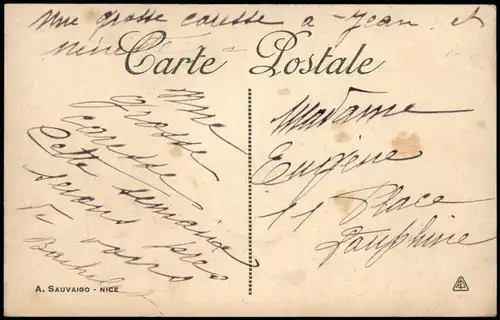 une grosse caresse a Jean et
Carte Postale
une
grosse
caresse
Cette semaine
serons près
de vous
Madame
Eugène
11 Place
Dauphine
A. SAUVAIGO - NICE